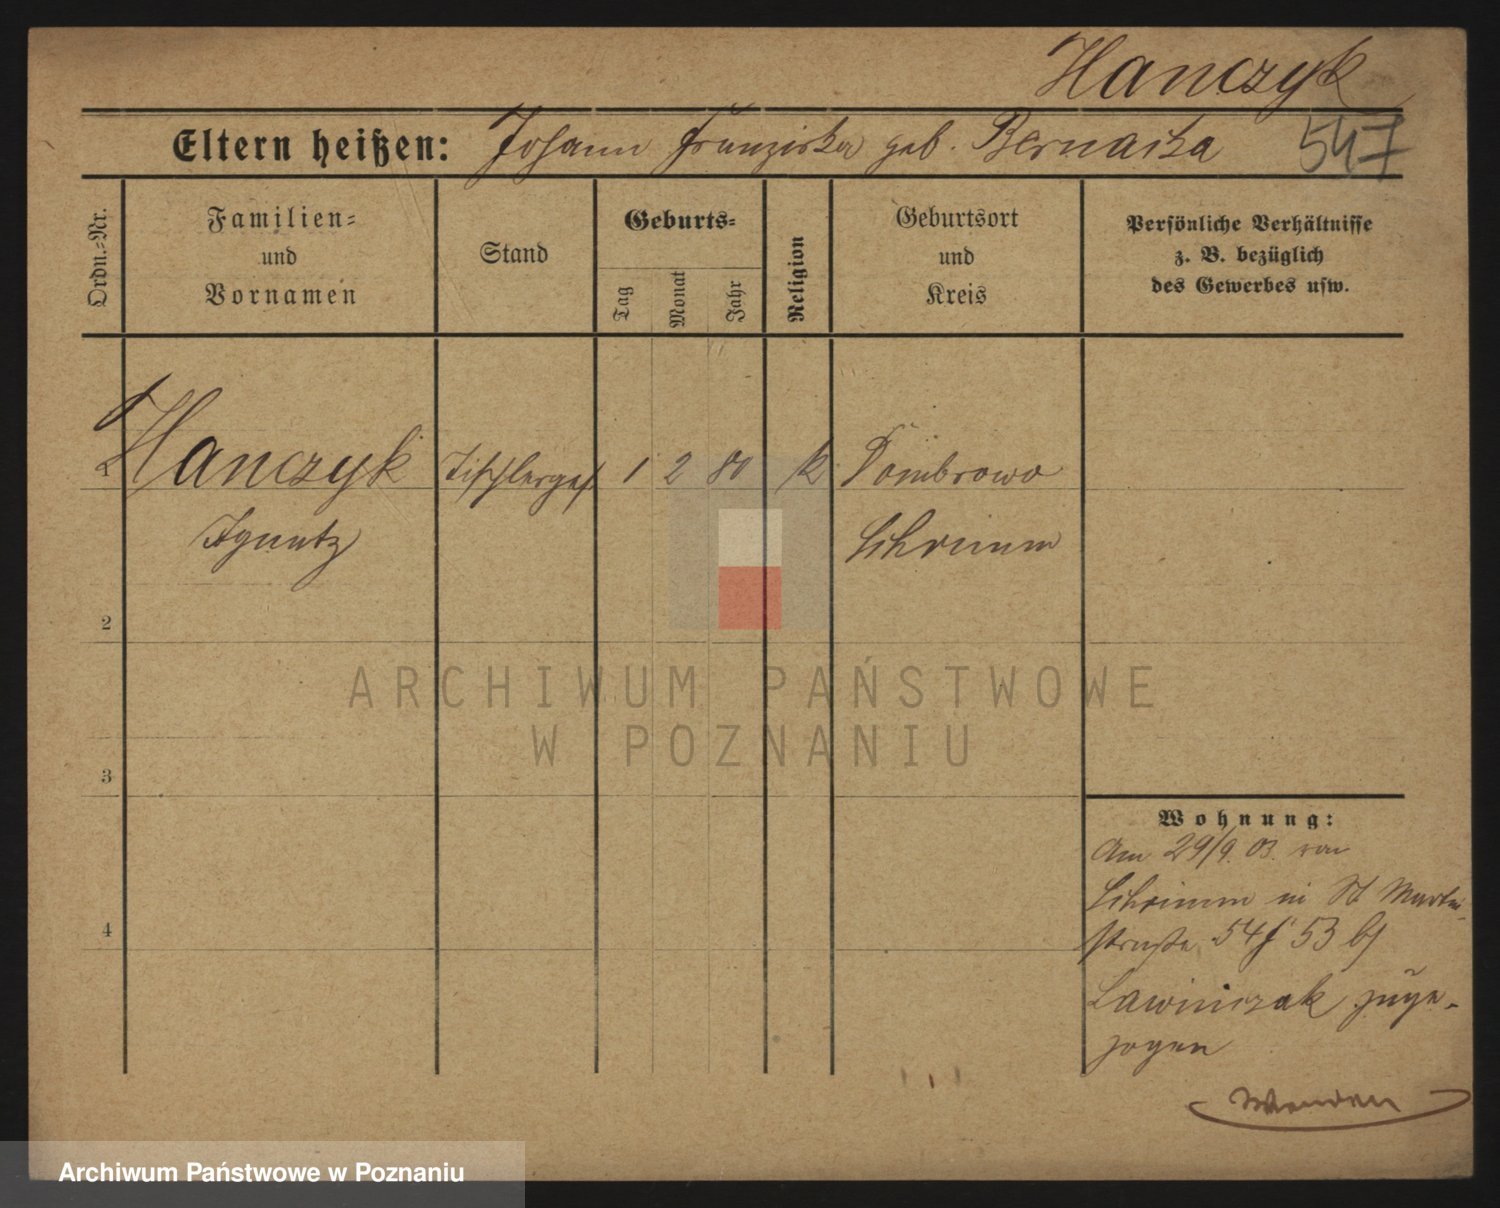 Hanczyk
Eltern heißen: Johann Franziska geb. Bernacka
547
Ordn.-Nr.
Familien-
und
Vornamen
Stand
Geburts-
Tag
Monat
Jahr
Religion
Geburtsort
und
Kreis
Persönliche Verhältnisse
z. B. bezüglich
des Gewerbes usw.
1 Hanczyk Tischlerges 1 2 80 k Dombrowo
Ignatz Schrimm
2
3
4
Wohnung:
Am 29/9. 03. von
Schrimm in St Martin-
straße 54/53 b/
Lawniczak zuge-
zogen
Wenden
ARCHIWUM PAŃSTWOWE
W POZNANIU
Archiwum Państwowe w Poznaniu